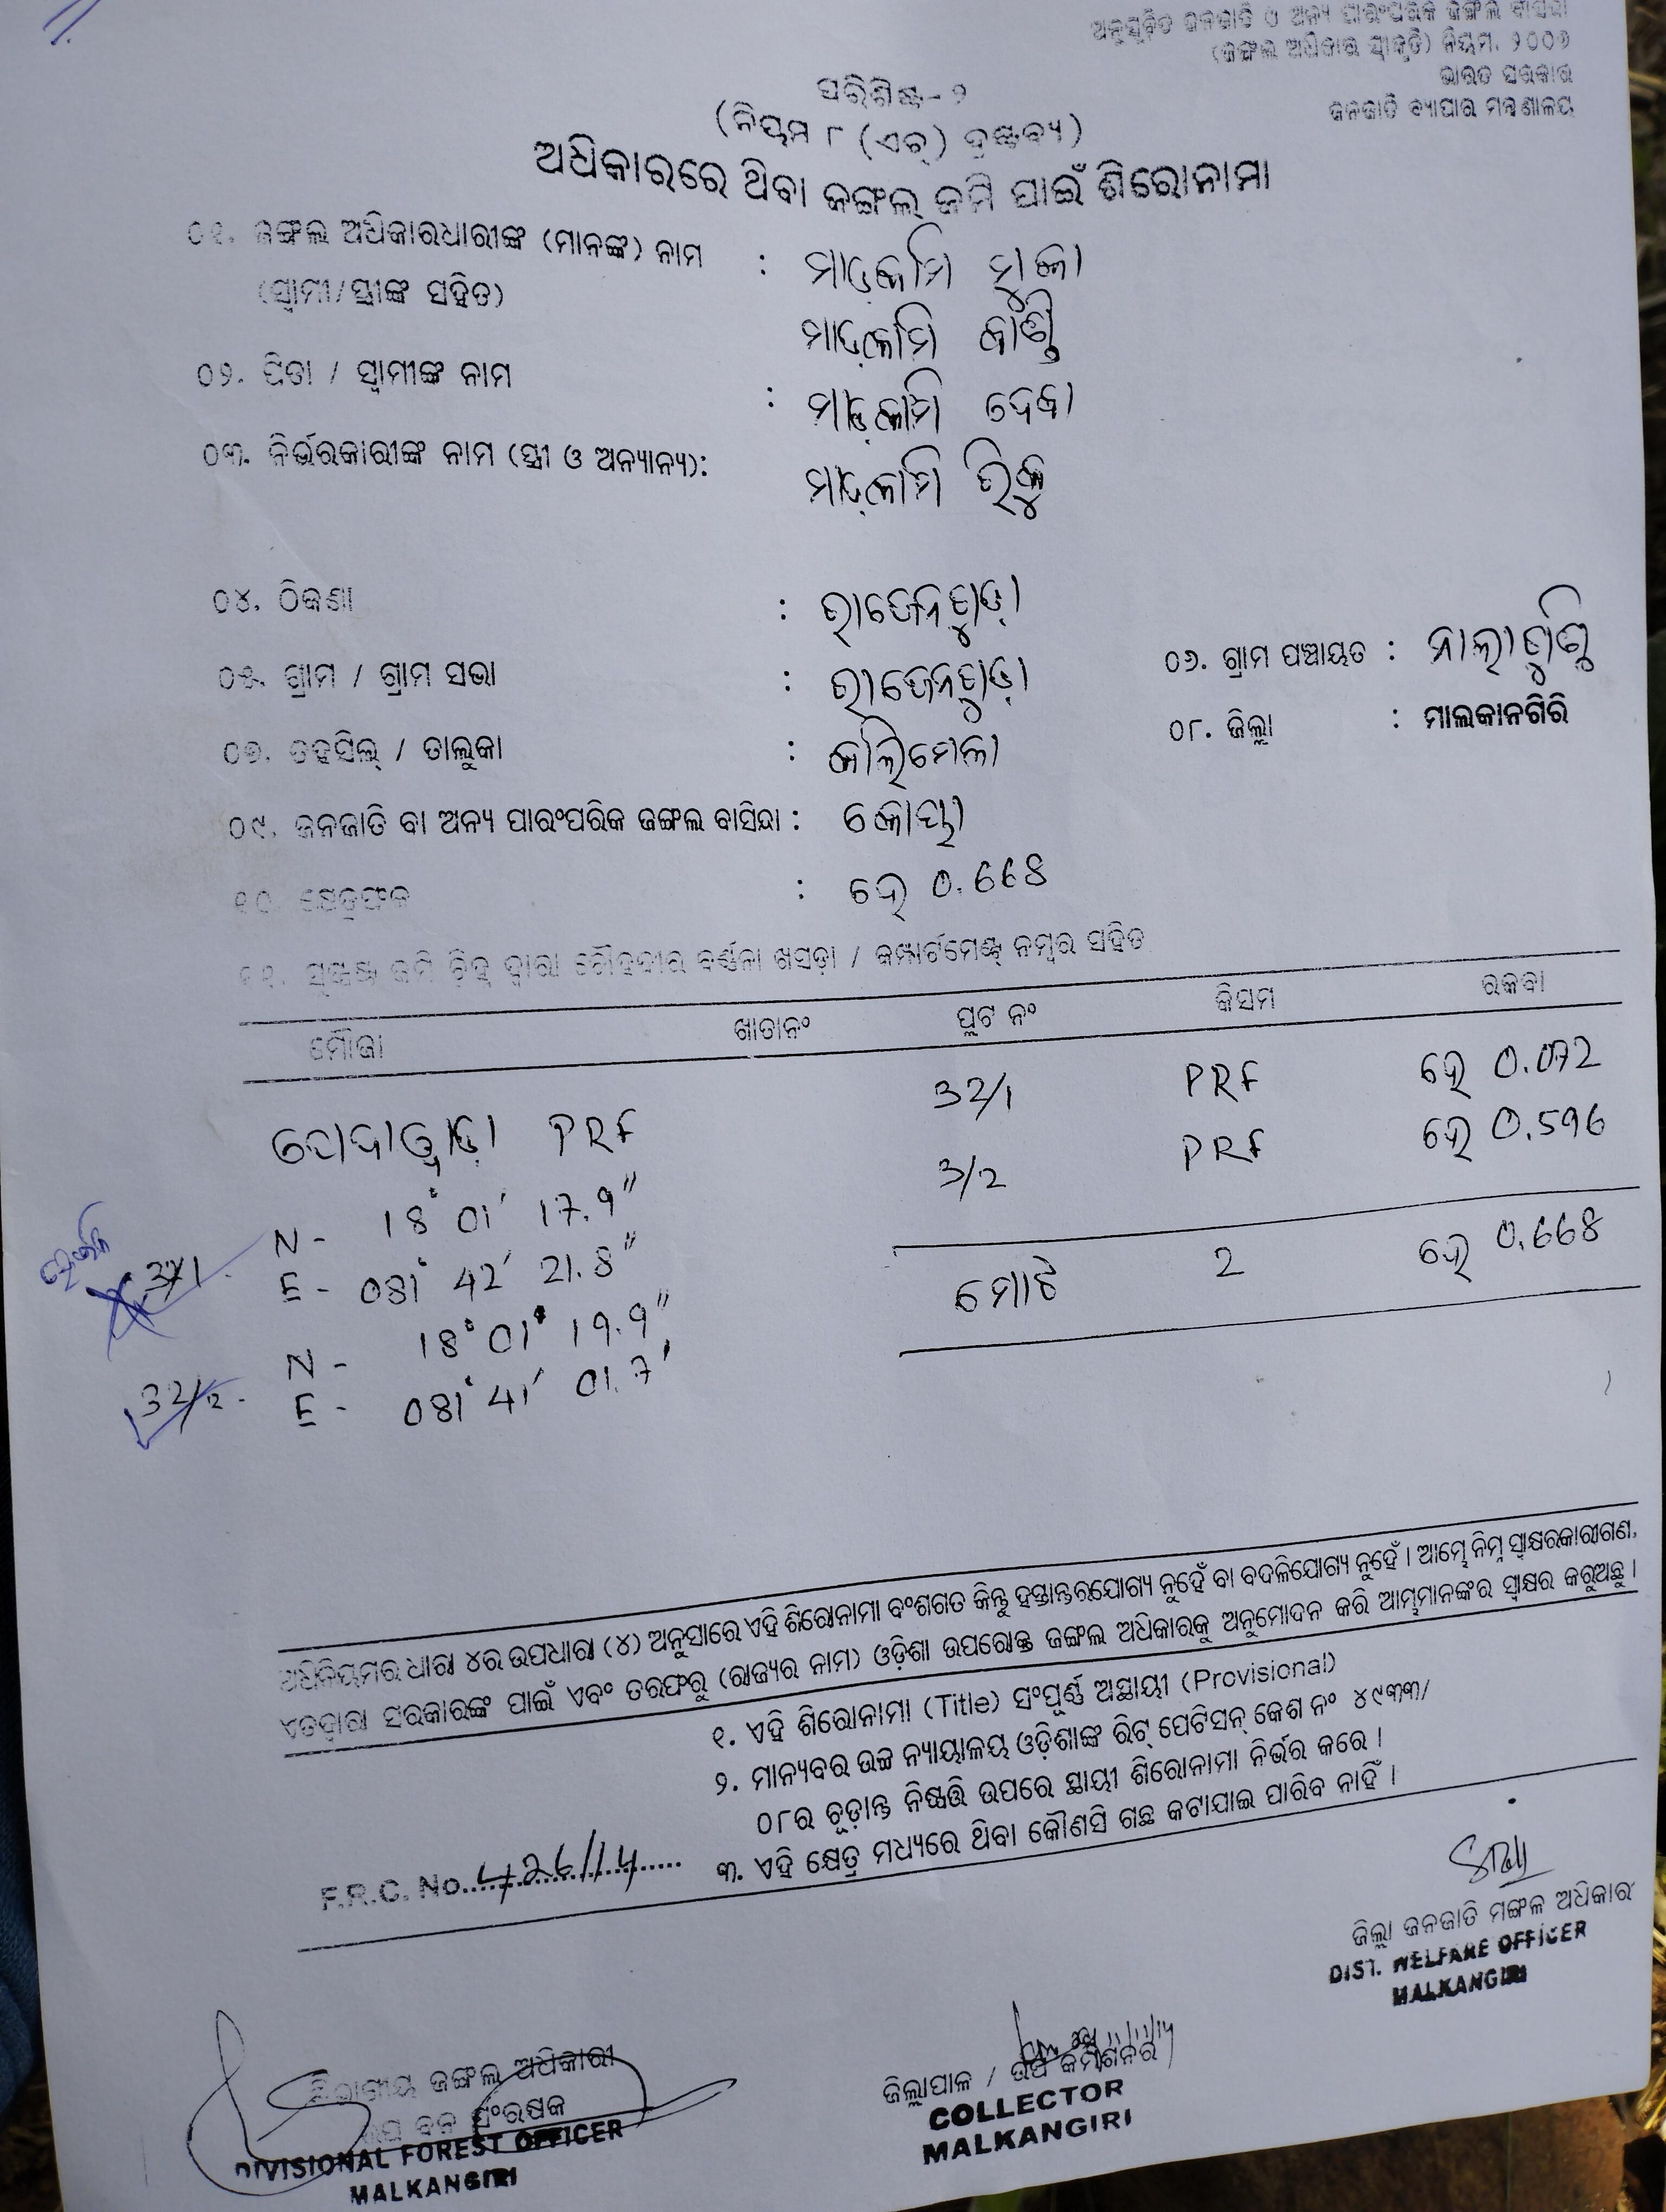 ଅନୁସୂଚିତ ଜନଜାତି ଓ ଅନ୍ୟ ପାରଂପରିକ ଜଙ୍ଗଲ ବାସିନ୍ଦା
(ଜଙ୍ଗଲ ଅଧିକାର ସ୍ୱୀକୃତି) ନିୟମ, ୨୦୦୭
ଭାରତ ସରକାର
ଜନଜାତି ବ୍ୟାପାର ମନ୍ତ୍ରଣାଳୟ
ପରିଶିଷ୍ଟ-୨
(ନିୟମ ୮ (ଏଚ୍) ଦ୍ରଷ୍ଟବ୍ୟ)
ଅଧିକାରରେ ଥିବା ଜଙ୍ଗଲ ଜମି ପାଇଁ ଶିରୋନାମା
୦୧. ଜଙ୍ଗଲ ଅଧିକାରଧାରୀଙ୍କ (ମାନଙ୍କ) ନାମ : ମାଡ଼୍କାମି ମୁକା
(ସ୍ୱାମୀ/ସ୍ତ୍ରୀଙ୍କ ସହିତ) ମାଡ଼୍କାମି
୦୨. ପିତା / ସ୍ୱାମୀଙ୍କ ନାମ : ମାଡ଼୍କାମି ଦେବା
୦୩. ନିର୍ଭରକାରୀଙ୍କ ନାମ (ସ୍ତ୍ରୀ ଓ ଅନ୍ୟାନ୍ୟ): ମାଡ଼୍କାମି
୦୪. ଠିକଣା :
୦୫. ଗ୍ରାମ / ଗ୍ରାମ ସଭା :
୦୬. ଗ୍ରାମ ପଞ୍ଚାୟତ :
୦୭. ତହସିଲ୍ / ତାଲୁକା : କାଲିମେଳା
୦୮. ଜିଲ୍ଲା : ମାଲକାନଗିରି
୦୯. ଜନଜାତି ବା ଅନ୍ୟ ପାରଂପରିକ ଜଙ୍ଗଲ ବାସିନ୍ଦା : କୋୟା
୧୦. କ୍ଷେତ୍ରଫଳ : ହେ 0.668
୧୧. ସୁସ୍ପଷ୍ଟ ଜମି ଚିହ୍ନ ଦ୍ୱାରା ଚୌହଦୀର ବର୍ଣ୍ଣନା ଖସଡ଼ା / କମ୍ପାର୍ଟମେଣ୍ଟ ନମ୍ବର ସହିତ
ମୌଜା ଖାତାନଂ ପ୍ଲଟ ନଂ କିସମ ରକବା
PRF 32/1 PRF ହେ 0.072
3/2 PRF ହେ 0.596
ମୋଟ 2 ହେ 0.668
N - 18° 01' 17.9"
32/1 - E - 081° 42' 21.8"
N - 18° 01° 19.9"
32/2 - E - 081° 41' 01.7'
ଅଧିନିୟମର ଧାରା ୪ର ଉପଧାରା (୪) ଅନୁସାରେ ଏହି ଶିରୋନାମା ବଂଶଗତ କିନ୍ତୁ ହସ୍ତାନ୍ତରଯୋଗ୍ୟ ନୁହେଁ ବା ବଦଳିଯୋଗ୍ୟ ନୁହେଁ । ଆମ୍ଭେ ନିମ୍ନ ସ୍ୱାକ୍ଷରକାରୀଗଣ,
ଏତଦ୍ୱାରା ସରକାରଙ୍କ ପାଇଁ ଏବଂ ତରଫରୁ (ରାଜ୍ୟର ନାମ) ଓଡ଼ିଶା ଉପରୋକ୍ତ ଜଙ୍ଗଲ ଅଧିକାରକୁ ଅନୁମୋଦନ କରି ଆମ୍ଭମାନଙ୍କର ସ୍ୱାକ୍ଷର କରୁଅଛୁ ।
୧. ଏହି ଶିରୋନାମା (Title) ସଂପୂର୍ଣ୍ଣ ଅସ୍ଥାୟୀ (Provisional)
୨. ମାନ୍ୟବର ଉଚ୍ଚ ନ୍ୟାୟାଳୟ ଓଡ଼ିଶାଙ୍କ ରିଟ୍ ପେଟିସନ୍ କେଶ ନଂ ୪୯୩୩/
୦୮ର ଚୂଡ଼ାନ୍ତ ନିଷ୍ପତ୍ତି ଉପରେ ସ୍ଥାୟୀ ଶିରୋନାମା ନିର୍ଭର କରେ ।
୩. ଏହି କ୍ଷେତ୍ର ମଧ୍ୟରେ ଥିବା କୌଣସି ଗଛ କଟାଯାଇ ପାରିବ ନାହିଁ ।
F.R.C. No.
ଜିଲ୍ଲା ଜନଜାତି ମଙ୍ଗଳ ଅଧିକାରୀ
DIST. WELFARE OFFICER
MALKANGIRI
ବିଭାଗୀୟ ଜଙ୍ଗଲ ଅଧିକାରୀ
ଉପ ବନ ସଂରକ୍ଷକ
DIVISIONAL FOREST OFFICER
MALKANGIRI
ଜିଲ୍ଲାପାଳ / ଉପ କମିଶନର
COLLECTOR
MALKANGIRI